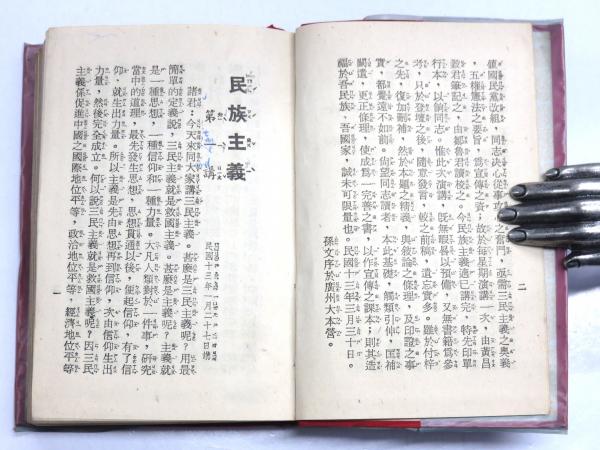 二
值國民黨改組，同志決心從事
之奮鬥，亟需三民主義之奧義
，五權憲法之要旨，爲宣傳之資；故於每星期演講一次，由黃昌
穀君筆記之，由鄒魯君讀校之。今民族主義適已講完，特先印單
行本，以餉同志。惟此次演講，旣無暇晷以預備，又無書籍爲參
考，只於登壇之後，隨意發言，較之前稿，遺忘實多。雖於付梓
之先，復加刪補，然於本題之精義，與敘論之條理，及印證之事
實，都覺遠不如前。尚望同志讀者，本此基礎，觸類引伸，匡補
闕遺，更正條理，使成爲一完善之書，以作宣傳之課本；則其造
福於吾民族，吾國家，誠未可限量也。民國十三年三月三十日。
孫文序於廣州大本營。
民族主義
第一講
民國十三年一月二十七日講
諸君：今天來同大家講三民主義。甚麼是三民主義呢？用最
簡單的定義說，三民主義就是救國主義。甚麼是主義呢？主義就
是一種思想，一種信仰和一種力量。大凡人類對於一件事，研究
當中的道理，最先發生思想，思想貫通以後，便起信仰，有了信
仰，就生出力量。所以主義是先由思想再到信仰，次由信仰生出
力量，然後完全成立。何以說三民主義就是救國主義呢？因三民
主義係促進中國之國際地位平等，政治地位平等，經濟地位平等
一